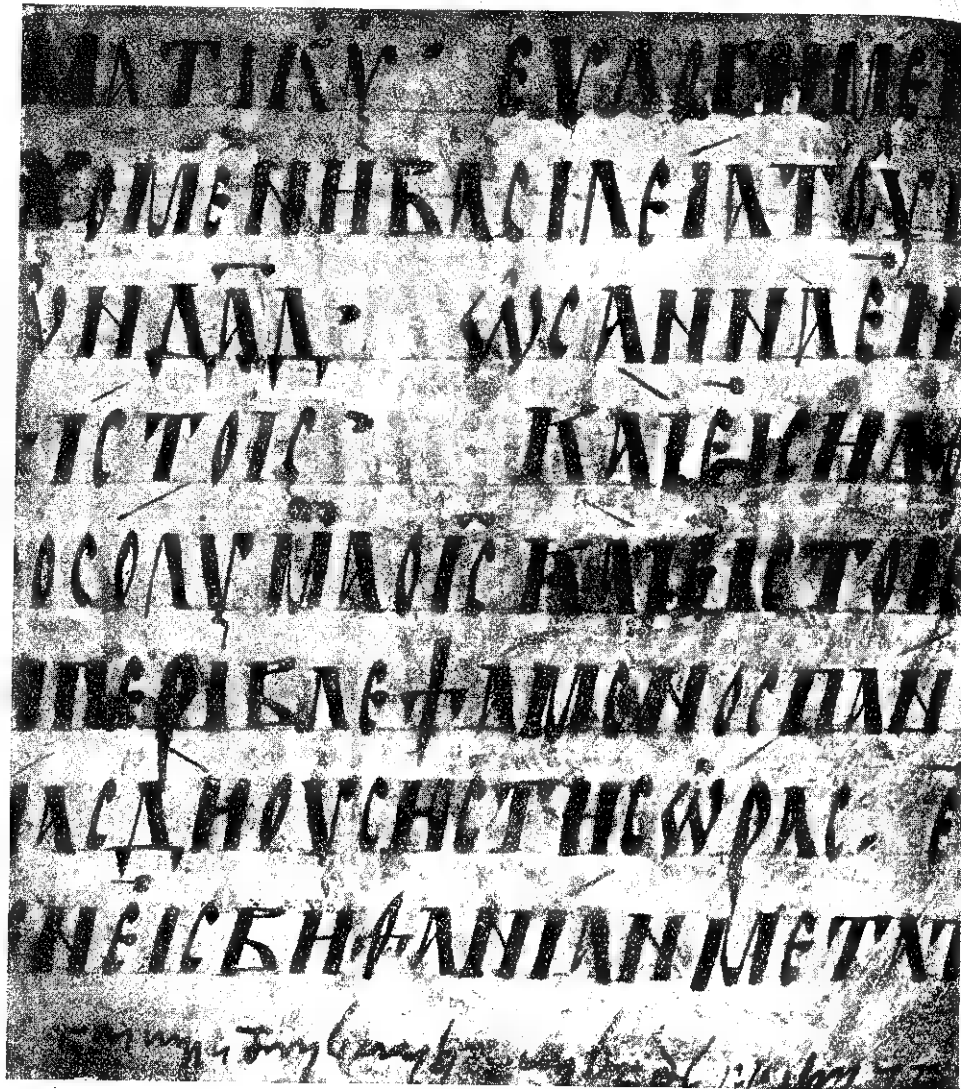 ΜΑΤΙΚΥ· ΕΥΛΟΓΗΜΕ
ΟΜΕΝΗΒΑCΙΛΕΙΑΤΟΥ
ΩΝΔΑΔ· ΩCΑΝΝΑΕΝ
ΙCΤΟΙC· ΚΑΙΕΙCΗΛΘ
ΟCΟΛΥΜΑΟΙCΚΑΙΕΙCΤΟΙΕ
ΠΕΡΙΒΛΕΨΑΜΕΝΟCΠΑΝ
ΑCΔΗΟΥCΗCΤΗCΩΡΑC. Ε
ΝΕΙCΒΗΘΑΝΙΑΝΜΕΤΑΤ